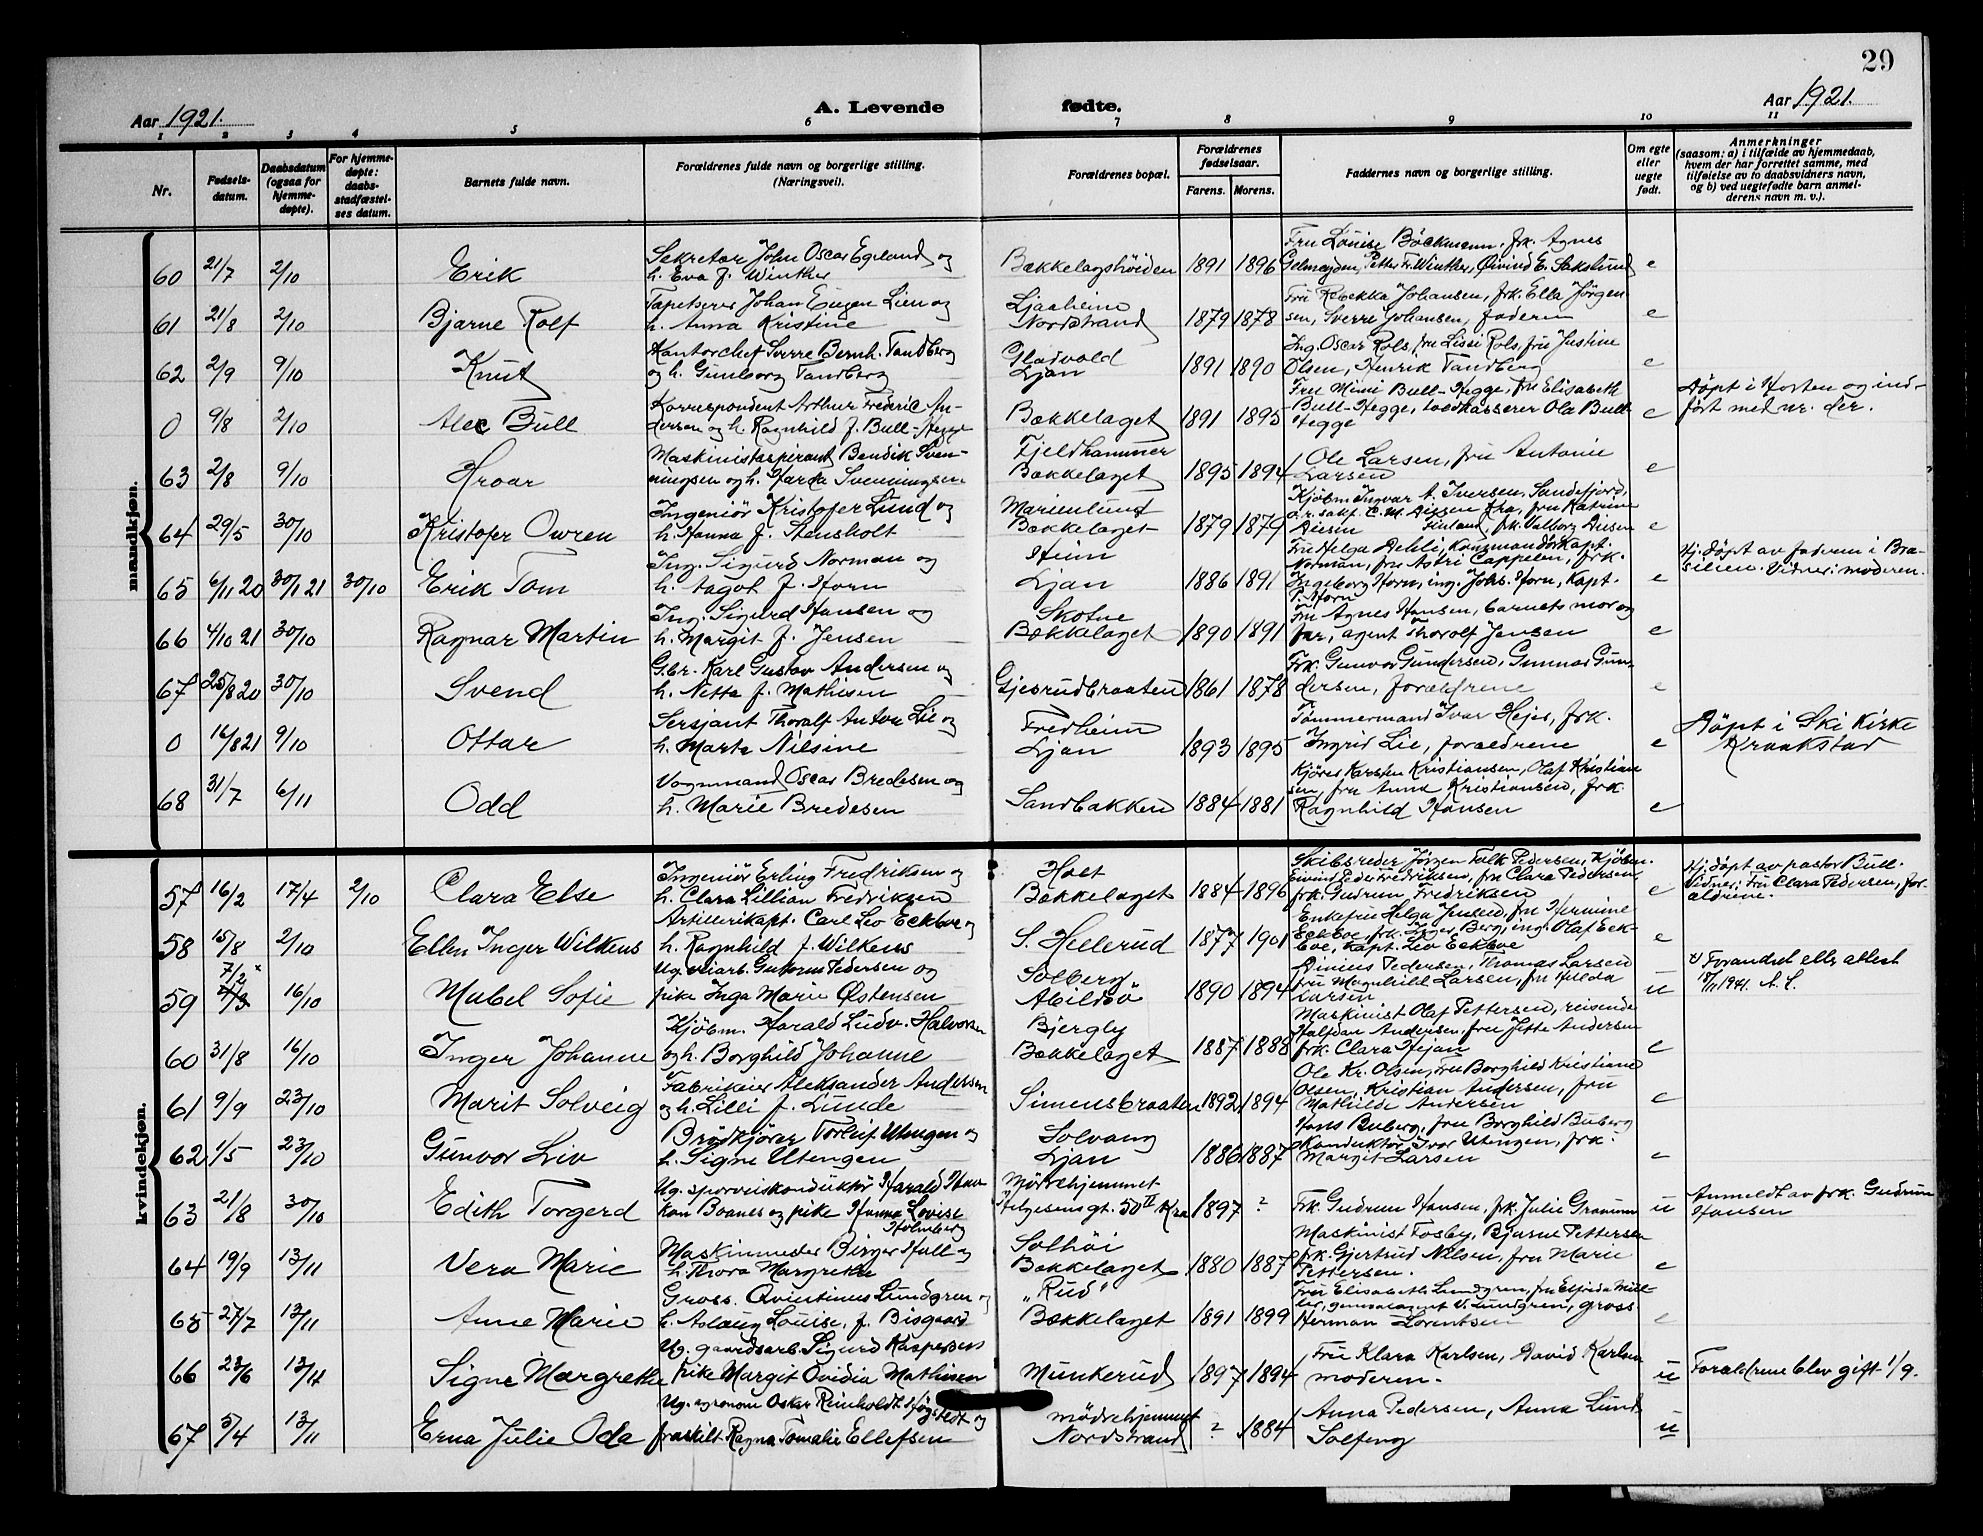 29
Aar 1921.
A. Levende
fødte.
Aar 1921.
1 2 3 4 5 6 7 8 9 10 11
Nr.
Fødsels-
datum.
Daabsdatum
(ogsaa for
hjemme-
døpte).
For hjemme-
døpte:
daabs-
stadfæstel-
ses datum.
Barnets fulde navn.
Forældrenes fulde navn og borgerlige stilling.
(Næringsvei).
Forældrenes bopæl.
Forældrenes
fødselsaar.
Farens. Morens.
Faddernes navn og borgerlige stilling.
Om egte
eller
uegte
født.
Anmerkninger
(saasom: a) i tilfælde av hjemmedaab,
hvem der har forrettet samme, med
tilføielse av to daabsvidners navn,
og b) ved uegtefødte barn anmel-
derens navn m. v.).
mandkjøn.
60 21/7 2/10 Erik
Sekretær John Oscar Egeland og
h. Eva f. Winther
Bækkelagshøiden 1891 1896
Fru Louise Böckmann, frk. Agnes
Gelmeyden, Petter Fr. Winther, Øivind E. Sakslund e
61 21/8 2/10 Bjarne Rolf
Tapetserer Johan Eugen Lien og
h. Anna Kristine
Ljaaheim
Nordstrand 1879 1878
Fru Rebekka Johansen, frk. Ella Jörgen-
sen, Sverre Johansen, faderen e
62 2/9 9/10 Knut
Kontorchef Sverre Bernh. Tandberg
og h. Gunborg Tandberg
Gladvold
Ljan 1891 1890
Ing. Oscar Rols, fru Lissi Rols, fru Justine
Olsen, Henrik Tandberg e
0 9/8 2/10 Alec Bull
Korrespondent Arthur Frederic An-
dersen og h. Ragnhild f. Bull-Hegge
Bækkelaget 1891 1895
Fru Mimi Bull-Hegge, fru Elisabeth
Bull-Hegge, toldkasserer Ola Bull-
Hegge e
Döpt i Horten og ind-
fört med nr. der.
63 2/8 9/10 Hroar
Maskinistaspirant Bendik Sven-
ningsen og h. Harda Svenningsen
Fjeldhammer
Bækkelaget 1895 1894
Ole Larsen, fru Antonie
Larsen e
64 29/5 30/10 Kristofer Owren
Ingeniör Kristofer Lund og
h. Hanna f. Stensholt
Marienlund
Bækkelaget 1879 1879
Kjöbm. Ingvar A. Iversen, Sandefjord,
fru Katrine
frk. Valborg e
65 6/11 20 30/1 21 30/10 Erik Tom
Ing. Sigurd Norman og
h. Aagot f. Horn
Heim
Ljan 1886 1891
Fru Helga Aehli, kommandörkapt.
Norman, fru Astri Cappelen, frk.
Ingeborg Horn, ing. Johs. Horn, kapt.
P. Horn e
Hj. döpt av faderen i Bra-
silien. Vidner: moderen.
66 4/10 21 30/10 Ragnar Martin
Ing. Sigurd Hansen og
h. Margit f. Jensen
Skotne
Bækkelaget 1890 1891
Fru Agnes Hansen, barnets mor og
far, agent Thorolf Jensen e
67 25/8 20 30/10 Svend
Gbr. Karl Gustav Andersen og
h. Netta f. Mathisen
Gjesrudbraaten 1861 1878
Frk. Gunvor Gundersen, Gunnar Gun-
dersen, forældrene e
0 16/8 21 9/10 Ottar
Sersjant Thoralf Anton Lie og
h. Marta Nilsine
Fredheim
Ljan 1893 1895
Tømmermand Ivar Hejer, frk.
Ingrid Lie, forældrene e
Döpt i Ski kirke
Kraakstad
68 31/7 6/11 Odd
Vognmand Oscar Bredesen og
h. Marie Bredesen
Sandbakken 1884 1881
Kjörer Karsten Kristiansen, Olaf Kristian-
sen, fru Anna Kristiansen, frk.
Ragnhild Hansen e
kvindekjøn.
57 16/2 17/4 2/10 Clara Else
Ingeniör Erling Fredriksen og
h. Clara Lillian Fredriksen
Holt
Bækkelaget 1884 1896
Skibsreder Jörgen Falk Pedersen, kjöbm.
Eivind Peder Fredriksen, frk. Clara Pedersen,
frk. Gudrun Fredriksen e
Hj. döpt av pastor Bull.
Vidner: Fru Clara Pedersen, for-
ældrene.
58 15/8 2/10 Ellen Inger Wilkens
Artillerikapt. Carl Leo Eckboe og
h. Ragnhild f. Wilkens
S. Hellerud 1877 1901
Enkefru Helga Jensen, fru Hermine
Eckboe, frk. Inger Berg, ing. Olaf Eck-
boe, kapt. Leo Eckboe e
59 7/2 x 16/10 Mabel Sofie
Ug. veiarb. Guttorm Pedersen og
pike Inga Marie Østensen
Solberg
Abildsö 1890 1894
Dinius Pedersen, Thomas Larsen
fru Magnhild Larsen, fru Hilda
Larsen u
x) Forandret efter attest
18/11 1941. A. L.
60 31/8 16/10 Inger Johanne
Kjöbm. Harald Ludv. Halvorsen
og h. Borghild Johanne
Bjergly
Bækkelaget 1887 1888
Maskinist Olaf Pettersen, reisende
Halfdan Andersen, fru Jette Andersen
frk. Clara Hejan e
61 9/9 23/10 Marit Solveig
Fabrikeier Aleksander Andersen
og h. Lilli f. Lunde
Simensbraaten 1892 1894
Ole Kr. Olsen, fru Borghild Kristiane
Olsen, Kristian Andersen, fru
Mathilde Andersen e
62 1/5 23/10 Gunvor Liv
Brødkjører Torleif Utengen og
h. Signe Utengen
Solvang
Ljan 1886 1887
Hans Buberg, fru Borghild Buberg
Konduktör Ivar Utengen, frk.
Margit Larsen e
63 21/8 30/10 Edith Torgerd
Ug. sporveiskonduktör Harald Haa-
kon Boanes og pike Hanna Lovise
Holmberg
Mödrehjemmet
Helgesensgt. 50 IV Kra 1897 ?
Frk. Gudrun Hansen, frk. Julie Granum u
Anmeldt av frk. Gudrun
Hansen
64 19/9 13/11 Vera Marie
Maskinmester Birger Hall og
h. Thora Margrethe
Solhöi
Bækkelaget 1880 1887
Maskinist Fosby, Bjarne Pettersen
frk. Gjertrud Nilsen, fru Marie
Pettersen. e
65 27/7 13/11 Anne Marie
Gross. Qvintinus Lundgren og
h. Aslaug Louise, f. Bisgaard
"Rud"
Bækkelaget 1891 1899
Fru Elisabeth Lundgren, fru Elfrida Mül-
ler, generalagent V. Lundgren, gross.
Herman Lorentsen e
66 23/6 13/11 Signe Margrethe
Ug. gaardsarb. Sigurd Kaspersen
pike Margit Ovidia Mathisen
Munkerud 1897 1894
Fru Klara Karlsen, David Karlsen
moderen. u
Forældrene blev gift 1/9.
67 5/4 13/11 Erna Julie Oda
Ug. agronom Oskar Reinholdt Högstedt og
fraskilt Ragna Tomalie Ellefsen
Mödrehjemmet
Nordstrand ? 1884
Anna Pedersen, Anna Lund
Solfeng u